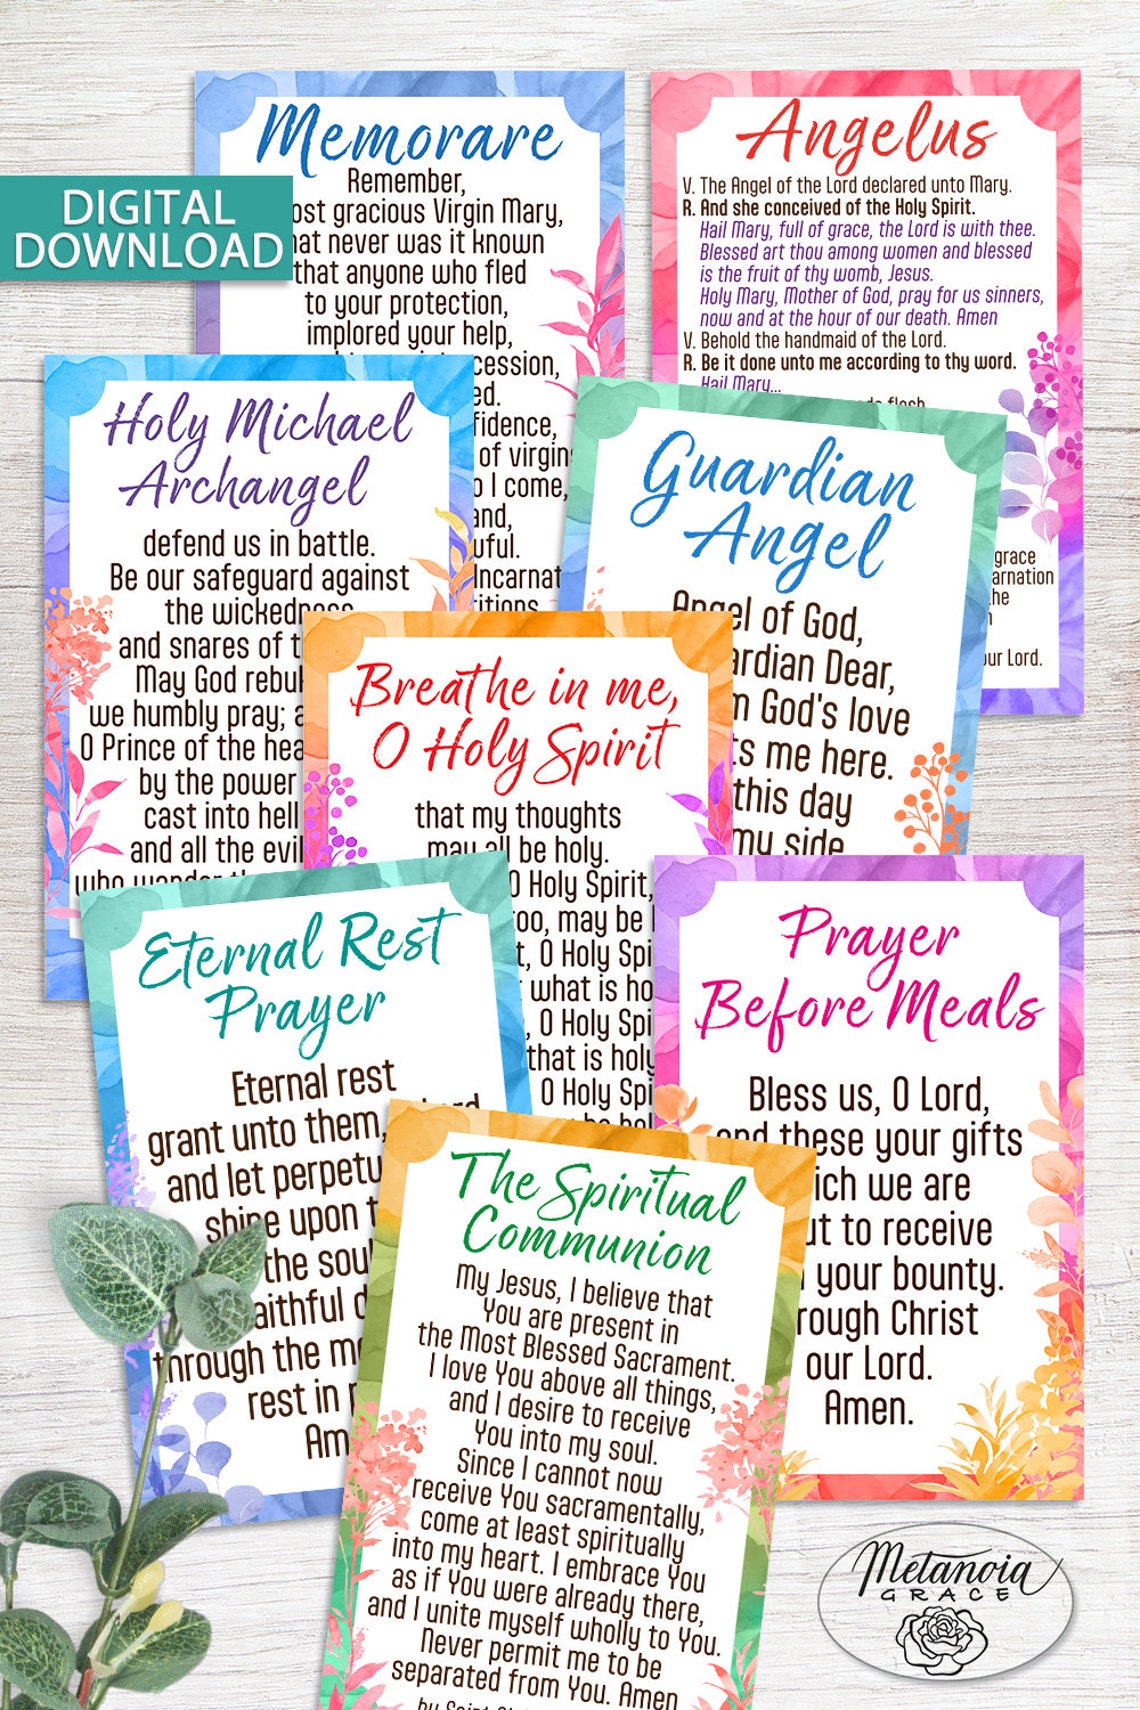 DIGITAL
DOWNLOAD
Memorare
Remember,
gracious Virgin Mary,
never was it known
that anyone who fled
to your protection,
implored your help,
of virgin
I come,
Angelus
V. The Angel of the Lord declared unto Mary.
R. And she conceived of the Holy Spirit.
Hail Mary, full of grace, the Lord is with thee.
Blessed art thou among women and blessed
is the fruit of thy womb, Jesus.
Holy Mary, Mother of God, pray for us sinners,
now and at the hour of our death. Amen
V. Behold the handmaid of the Lord.
R. Be it done unto me according to thy word.
Hail Mary...
grace
Lord.
Holy Michael
Archangel
defend us in battle.
Be our safeguard against
the wickedness
and snares of
May God
we humbly pray;
O Prince of the
by the power
cast into hell
and all the evil
who
Guardian
Angel
Angel of God,
Dear,
God's love
me here.
this day
my side
Breathe in me,
O Holy Spirit
that my thoughts
may all be holy.
O Holy Spirit,
too, may be
O Holy
what is
O Holy
that is holy
O Holy
Eternal Rest
Prayer
Eternal rest
grant unto them,
and let
shine upon
the
through the
rest in
Prayer
Before Meals
Bless us, O Lord,
and these your gifts
we are
to receive
your bounty.
Christ
our Lord.
Amen.
The Spiritual
Communion
My Jesus, I believe that
You are present in
the Most Blessed Sacrament.
I love You above all things,
and I desire to receive
You into my soul.
Since I cannot now
receive You sacramentally,
come at least spiritually
into my heart. I embrace You
as if You were already there,
and I unite myself wholly to You.
Never permit me to be
separated from You. Amen
by Saint
Metanoia
GRACE